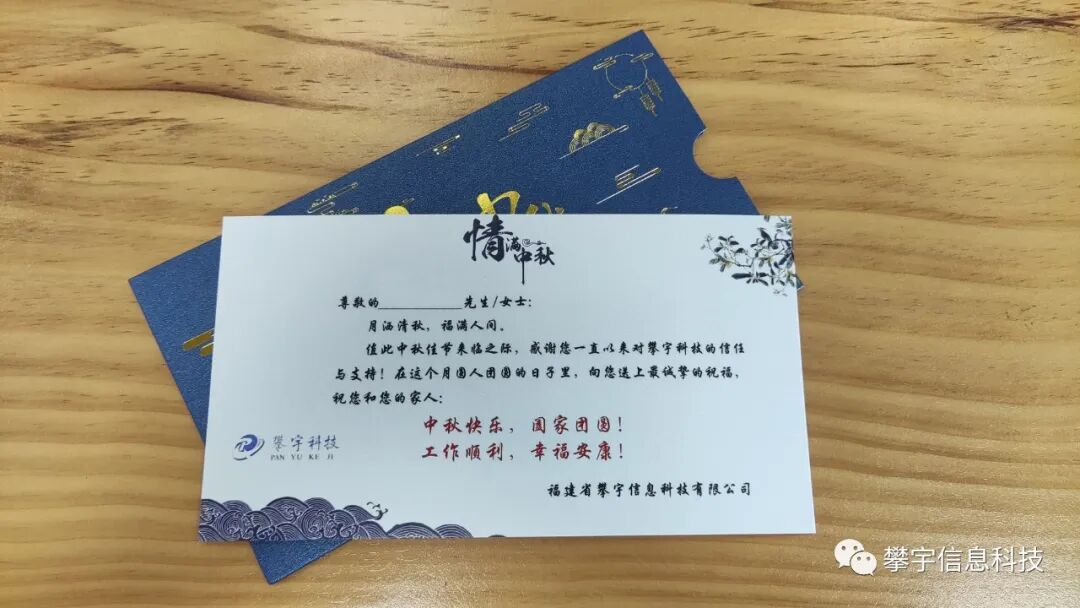 情满中秋
尊敬的__________先生/女士：
月洒清秋，福满人间。
值此中秋佳节来临之际，感谢您一直以来对攀宇科技的信任
与支持！在这个月圆人团圆的日子里，向您送上最诚挚的祝福，
祝您和您的家人：
中秋快乐，阖家团圆！
工作顺利，幸福安康！
攀宇科技
PAN YU KE JI
福建省攀宇信息科技有限公司
攀宇信息科技